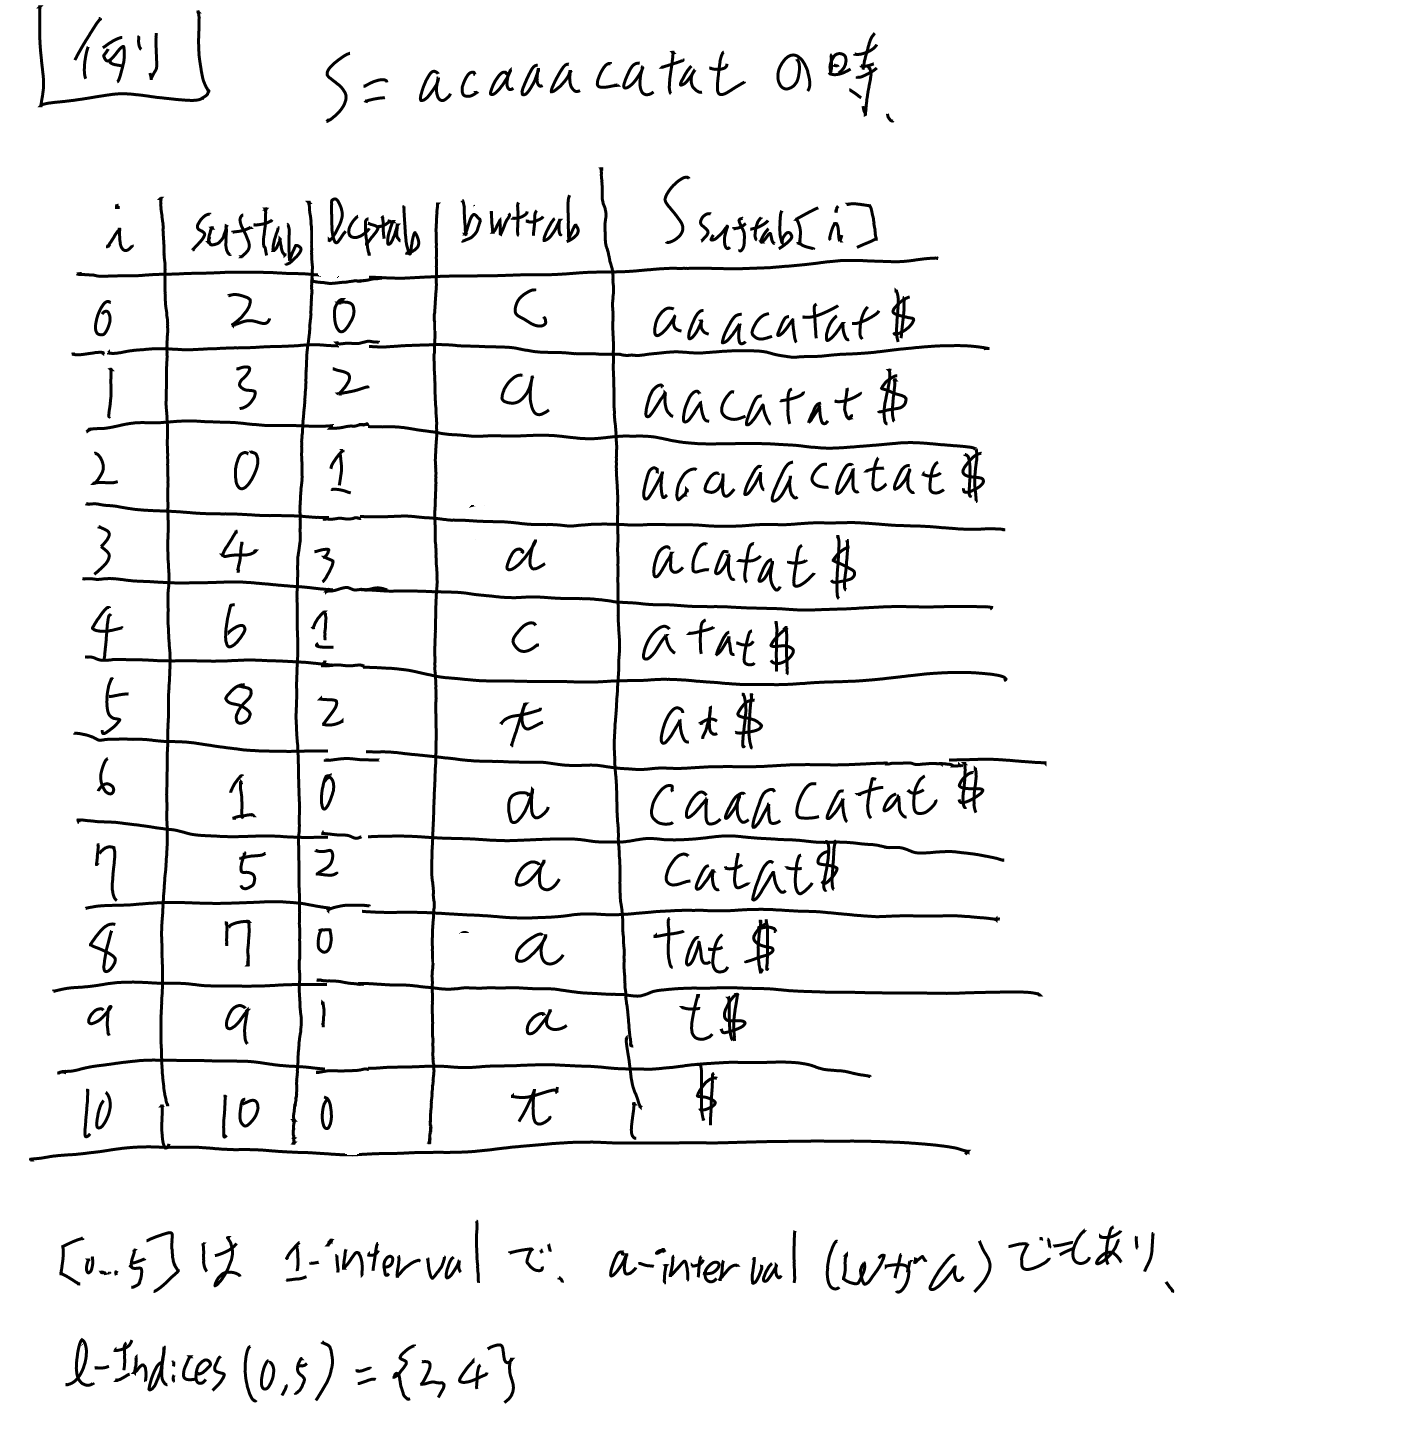 例
S = acaaacatat の時、
i suftab lcptab bwttab S suftab[i]
0 2 0 c aaacatat$
1 3 2 a aacatat$
2 0 1 acaaacatat$
3 4 3 a acatat$
4 6 1 c atat$
5 8 2 t at$
6 1 0 a caaacatat$
7 5 2 a catat$
8 7 0 a tat$
9 9 1 a t$
10 10 0 t $
[0...5] は 1-interval で、a-interval (wが a) でもあり、
l-Indices(0,5) = {2,4}